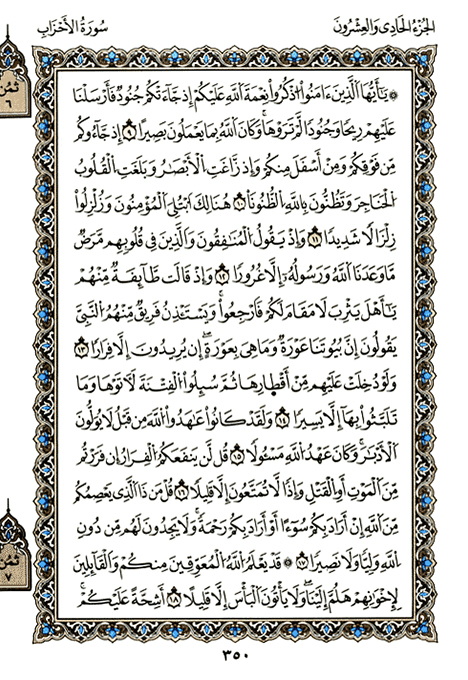 الجُزْءُ الحَادِى وَالعِشْرُونَ
سُورَةُ الأَحْزَابِ
۞ يَٰٓأَيُّهَا الَّذِينَ ءَامَنُوا۟ اذْكُرُوا۟ نِعْمَةَ اللَّهِ عَلَيْكُمْ إِذْ جَآءَتْكُمْ جُنُودٌ فَأَرْسَلْنَا
عَلَيْهِمْ رِيحًا وَجُنُودًا لَّمْ تَرَوْهَا ۚ وَكَانَ اللَّهُ بِمَا يَعْمَلُونَ بَصِيرًا ٩ إِذْ جَآءُوكُم
مِّن فَوْقِكُمْ وَمِنْ أَسْفَلَ مِنكُمْ وَإِذ زَّاغَتِ الْأَبْصَٰرُ وَبَلَغَتِ الْقُلُوبُ
الْحَنَاجِرَ وَتَظُنُّونَ بِاللَّهِ الظُّنُونَا ١٠ هُنَالِكَ ابْتُلِىَ الْمُؤْمِنُونَ وَزُلْزِلُوا۟
زِلْزَالًا شَدِيدًا ١١ وَإِذْ يَقُولُ الْمُنَٰفِقُونَ وَالَّذِينَ فِى قُلُوبِهِم مَّرَضٌ
مَّا وَعَدَنَا اللَّهُ وَرَسُولُهُۥٓ إِلَّا غُرُورًا ١٢ وَإِذْ قَالَت طَّآئِفَةٌ مِّنْهُمْ
يَٰٓأَهْلَ يَثْرِبَ لَا مَقَامَ لَكُمْ فَارْجِعُوا۟ ۚ وَيَسْتَـْٔذِنُ فَرِيقٌ مِّنْهُمُ النَّبِىَّ
يَقُولُونَ إِنَّ بُيُوتَنَا عَوْرَةٌ وَمَا هِىَ بِعَوْرَةٍ ۖ إِن يُرِيدُونَ إِلَّا فِرَارًا ١٣
وَلَوْ دُخِلَتْ عَلَيْهِم مِّنْ أَقْطَارِهَا ثُمَّ سُئِلُوا۟ الْفِتْنَةَ لَأٓتَوْهَا وَمَا
تَلَبَّثُوا۟ بِهَآ إِلَّا يَسِيرًا ١٤ وَلَقَدْ كَانُوا۟ عَٰهَدُوا۟ اللَّهَ مِن قَبْلُ لَا يُوَلُّونَ
الْأَدْبَٰرَ ۚ وَكَانَ عَهْدُ اللَّهِ مَسْـُٔولًا ١٥ قُل لَّن يَنفَعَكُمُ الْفِرَارُ إِن فَرَرْتُم
مِّنَ الْمَوْتِ أَوِ الْقَتْلِ وَإِذًا لَّا تُمَتَّعُونَ إِلَّا قَلِيلًا ١٦ قُلْ مَن ذَا الَّذِى يَعْصِمُكُم
مِّنَ اللَّهِ إِنْ أَرَادَ بِكُمْ سُوٓءًا أَوْ أَرَادَ بِكُمْ رَحْمَةً ۚ وَلَا يَجِدُونَ لَهُم مِّن دُونِ
اللَّهِ وَلِيًّا وَلَا نَصِيرًا ١٧ ۞ قَدْ يَعْلَمُ اللَّهُ الْمُعَوِّقِينَ مِنكُمْ وَالْقَآئِلِينَ
لِإِخْوَٰنِهِمْ هَلُمَّ إِلَيْنَا ۖ وَلَا يَأْتُونَ الْبَأْسَ إِلَّا قَلِيلًا ١٨ أَشِحَّةً عَلَيْكُمْ ۖ
٣٥٠
ثُمُن
٦
ثُمُن
٧